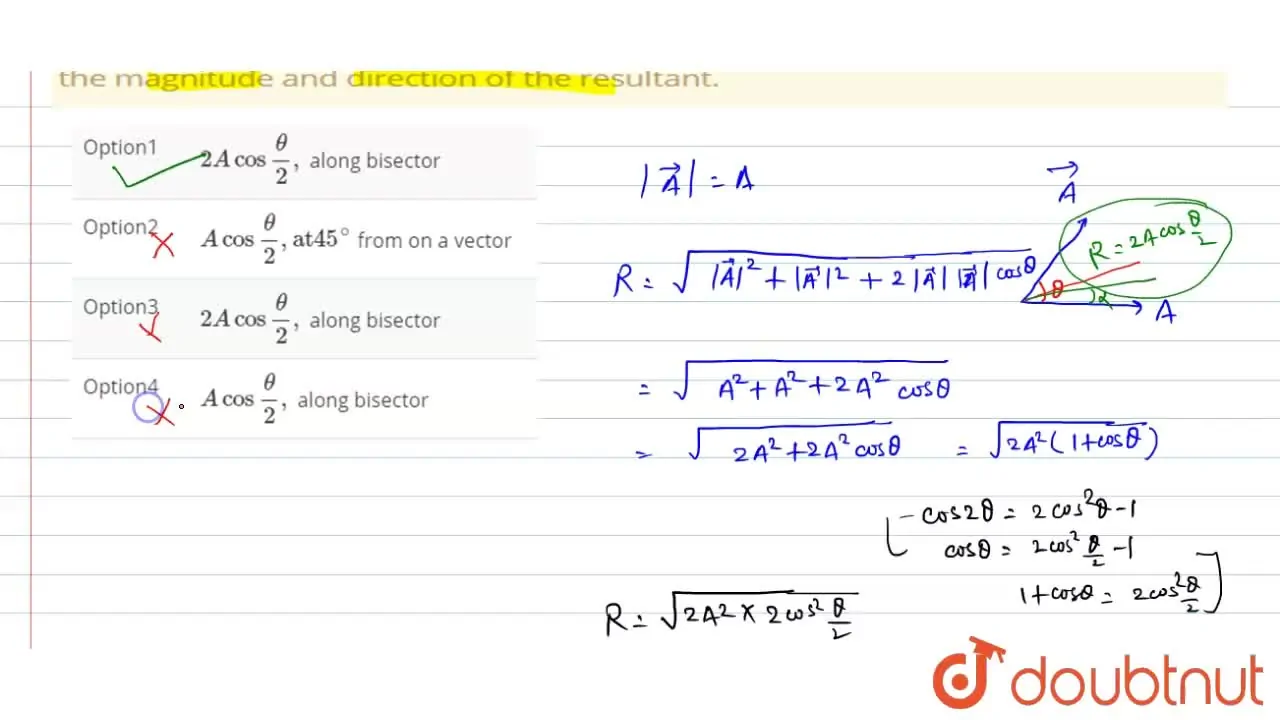 the magnitude and direction of the resultant.
Option1 2A cos θ/2, along bisector
Option2 A cos θ/2, at45° from on a vector
Option3 2A cos θ/2, along bisector
Option4 A cos θ/2, along bisector
|A⃗| = A
A⃗
R = 2A cos θ/2
θ
α
A
R = √|A⃗|² + |A⃗|² + 2 |A⃗| |A⃗| cosθ
= √A² + A² + 2A² cosθ
= √2A² + 2A² cosθ = √2A² (1 + cosθ)
cos2θ = 2cos²θ - 1
cosθ = 2cos² θ/2 - 1
1 + cosθ = 2cos² θ/2
R = √2A² × 2cos² θ/2
doubtnut